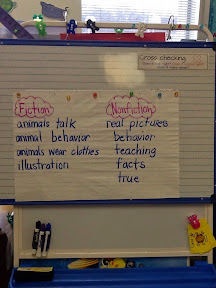 Cross-checking
Fiction
animals talk
animal behavior
animals wear clothes
illustration
Nonfiction
real pictures
behavior
teaching
facts
true